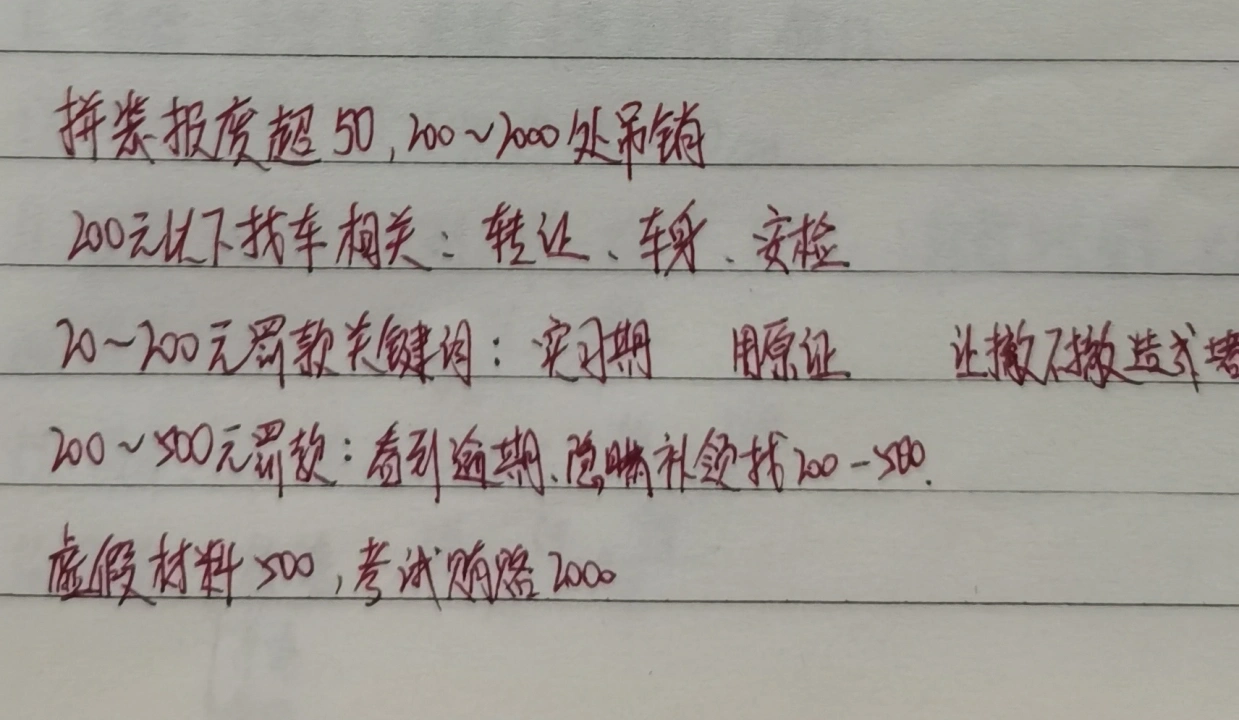 拼装报废超50,200~2000处吊销
200元以下找车相关:转让、车身、安检
20~200元罚款关键词:实习期 用原证 让撤不撤造成堵
200~500元罚款:看到逾期、隐瞒补领找200-500.
虚假材料500,考试贿赂2000